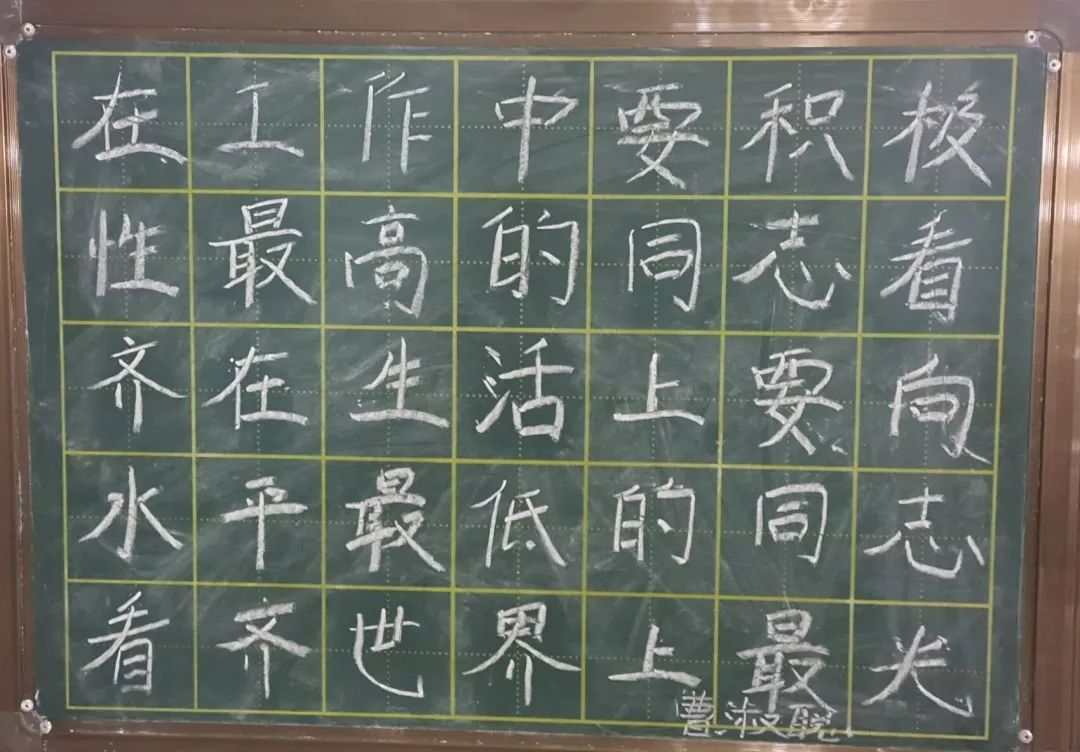 在工作中要积极
性最高的同志看
齐在生活上要向
水平最低的同志
看齐世界上最光
曹淑聪